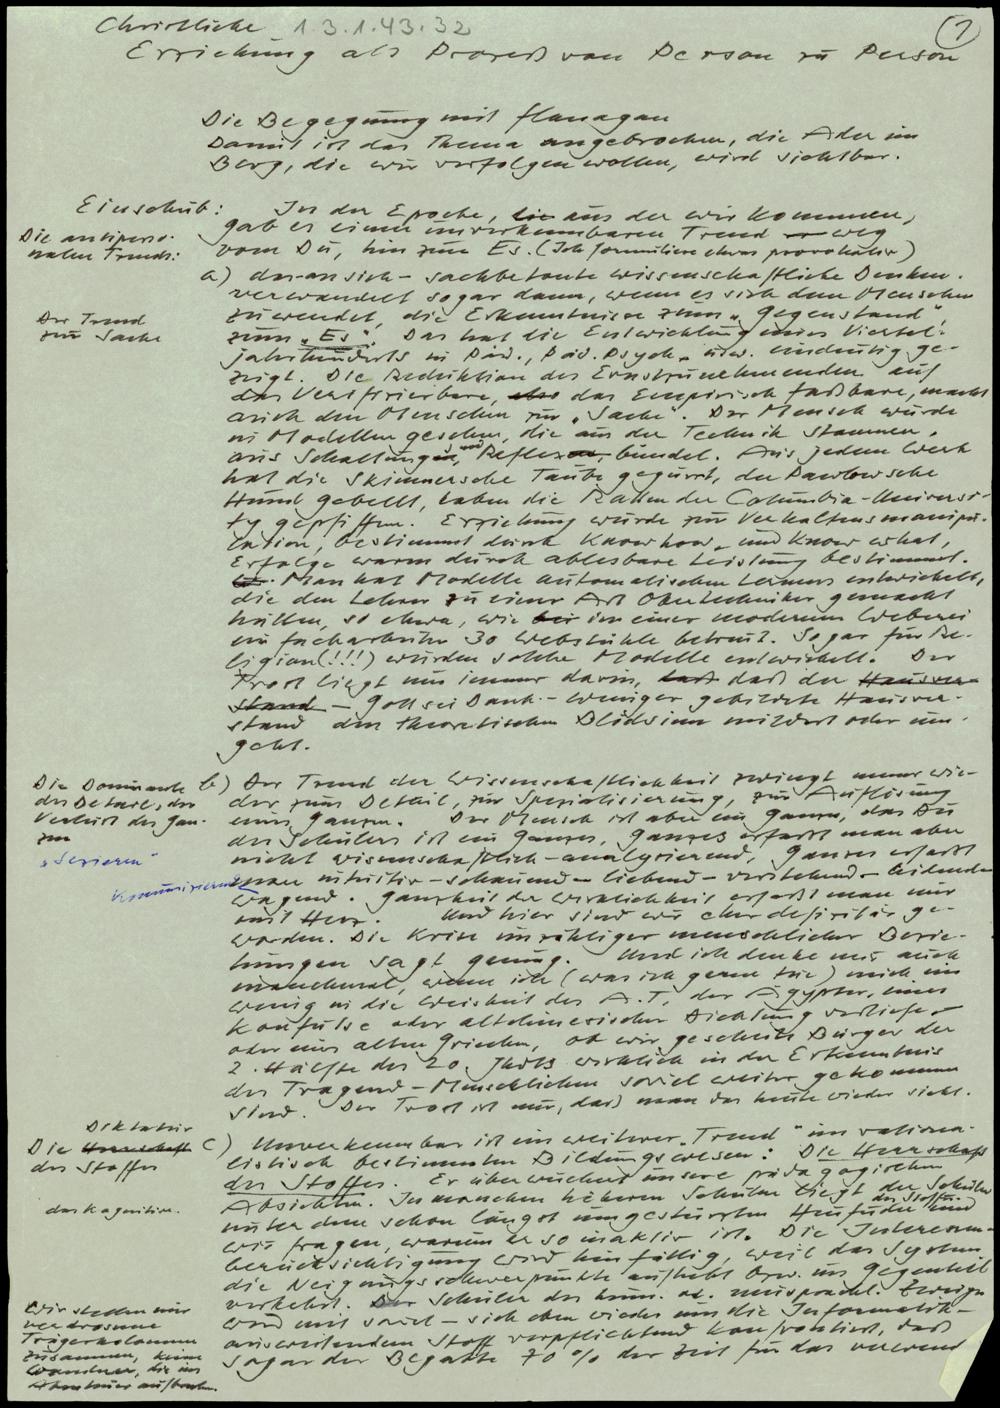 Christliche 1.3.1.43.32
1
Erziehung als Prozeß von Person zu Person
Die Begegnung mit Flanagan
Damit ist das Thema angebrochen, die Ader im
Berg, die wir verfolgen wollen, wird sichtbar.
Einschub:
Die antiperso-
nalen Trends:
In der Epoche, die aus der wir kommen,
gab es einen unverkennbaren Trend weg
vom Du, hin zum Es. (Ich formuliere etwas provokativ)
Der Trend
zur Sache
a) das an sich - sachbetonte wissenschaftliche Denken.
verwandelt sogar dann, wenn es sich dem Menschen
zuwendet, die Erkenntnisse zum „Gegenstand",
zum „Es". Das hat die Entwicklung eines Viertel-
jahrhunderts in Päd., Päd. Psych. usw. eindeutig ge-
zeigt. Die Reduktion des Ernstzunehmenden auf
das Verifizierbare, also das Empirisch faßbare, macht
auch den Menschen zur „Sache". Der Mensch wurde
in Modellen gesehen, die aus der Technik stammen,
aus Schaltungen, und Reflexen bündel. Aus jedem Werk
hat die Skinnersche Taube gegurrt, der Pawlowsche
Hund gebellt, haben die Ratten der Columbia-Universi-
ty gepfiffen. Erziehung wurde zur Verhaltensmanipu-
lation, bestimmt durch Know how, und Know what,
Erfolge waren durch ablesbare Leistung bestimmt.
Man hat Modelle automatischen Lernens entwickelt,
die den Lehrer zu einer Art Obertechniker gemacht
hätten, so etwa, wie bei in einer modernen Weberei
ein Facharbeiter 30 Webstühle betreut. Sogar für Re-
ligion (!!!) wurden solche Modelle entwickelt. Der
Trost liegt nur immer darin, daß der Hausver-
stand - Gott sei Dank - weniger gebildete Hausver-
stand den theoretischen Blödsinn mildert oder um-
geht.
Die Dominante
des Details, der
Verlust des Gan-
zen
„Sezieren"
b) Der Trend der Wissenschaftlichkeit zwingt immer wie-
der zum Detail, zur Spezialisierung, zur Auflösung
eines Ganzen. Der Mensch ist aber ein Ganzes, das Du
des Schülers ist ein Ganzes, Ganzes erfaßt man aber
nicht wissenschaftlich-analysierend, Ganzes erfaßt
man intuitiv - schauend - liebend - verstehend - leidend
wagend. Ganzheit der Wirklichkeit erfaßt man nur
mit Herz. Und hier sind wir eher defizitär ge-
worden. Die Krise unzähliger menschlicher Bezie-
hungen sagt genug. Und ich denke mir auch
manchmal, wenn ich (was ich gerne tue) mich ein
wenig in die Weisheit des A.T., der Ägypter, eines
Konfutse oder altchinesischer Dichtung vertiefe -
oder eines alten Griechen, ob wir gescheite Bürger der
2. Hälfte des 20. Jhdts wirklich in der Erkenntnis
des Tragend-Menschlichen soviel weiter gekommen
sind. Der Trost ist nur, daß man das heute wieder sieht.
Diktatur
Die Herrschaft
des Stoffes
das Kognitive.
c) Unverkennbar ist ein weiterer „Trend" im rationa-
listisch bestimmten Bildungswesen: Die Herrschaft
des Stoffes. Er überwuchert unsere pädagogischen
Absichten. In manchen höheren Schulen liegt der Schüler
unter dem schon längst umgestürzten Heufuder des Stoffes und
wir fragen, warum er so inaktiv ist. Die Interessen-
berücksichtigung wird hinfällig, weil das System
die Neigungsschwerpunkte aufhebt bzw. ins Gegenteil
verkehrt. Der Schüler des hum. od. neusprachl. Zweiges
wird mit soviel - sich eben wieder um die Informatik
ausweitendem Stoff verpflichtend konfrontiert, daß
sogar der Begabte 70% der Zeit für das
Wir stellen nur
verdrossene
Trägerkolonnen
zusammen, keine
Wanderer, die ins
Abenteuer aufbrechen.